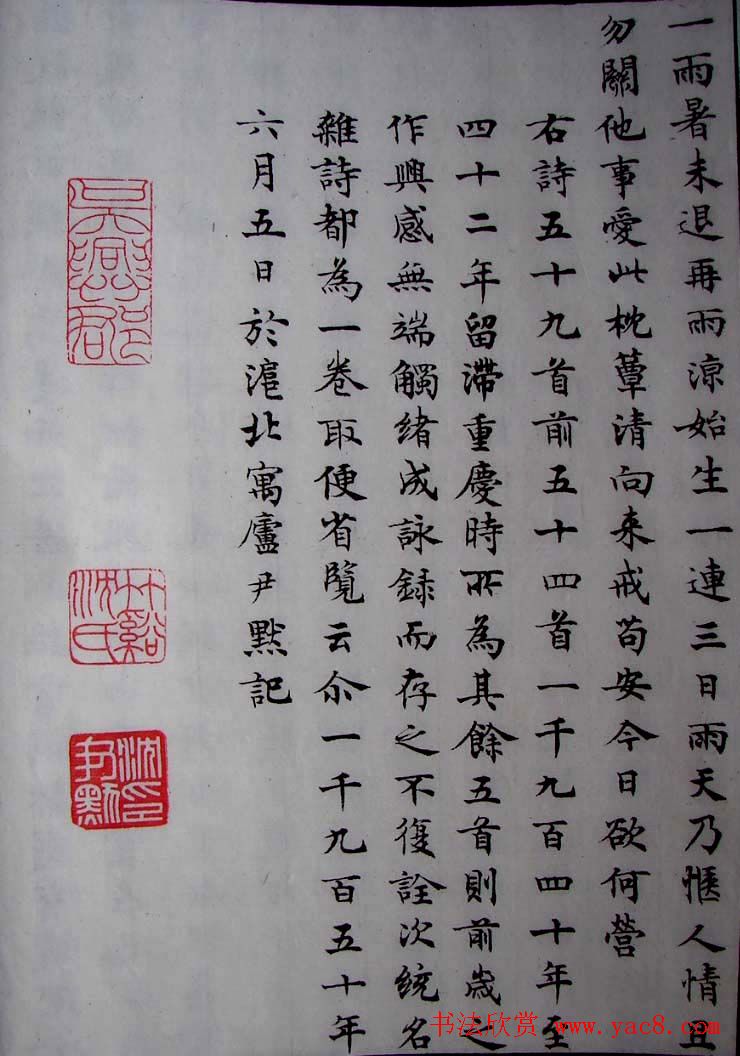 一雨暑未退再雨涼始生一連三日雨天乃愜人情且
勿關他事愛此枕簟清向来戒苟安今日欲何營
右詩五十九首前五十四首一千九百四十年至
四十二年留滯重慶時所為其餘五首則前歲之
作興感無端觸緒成詠録而存之不復詮次統名
雜詩都為一卷取便省覽云尒一千九百五十年
六月五日於滬北寓廬尹默記
竹谿沈氏
沈尹默印
书法欣赏 www.yac8.com